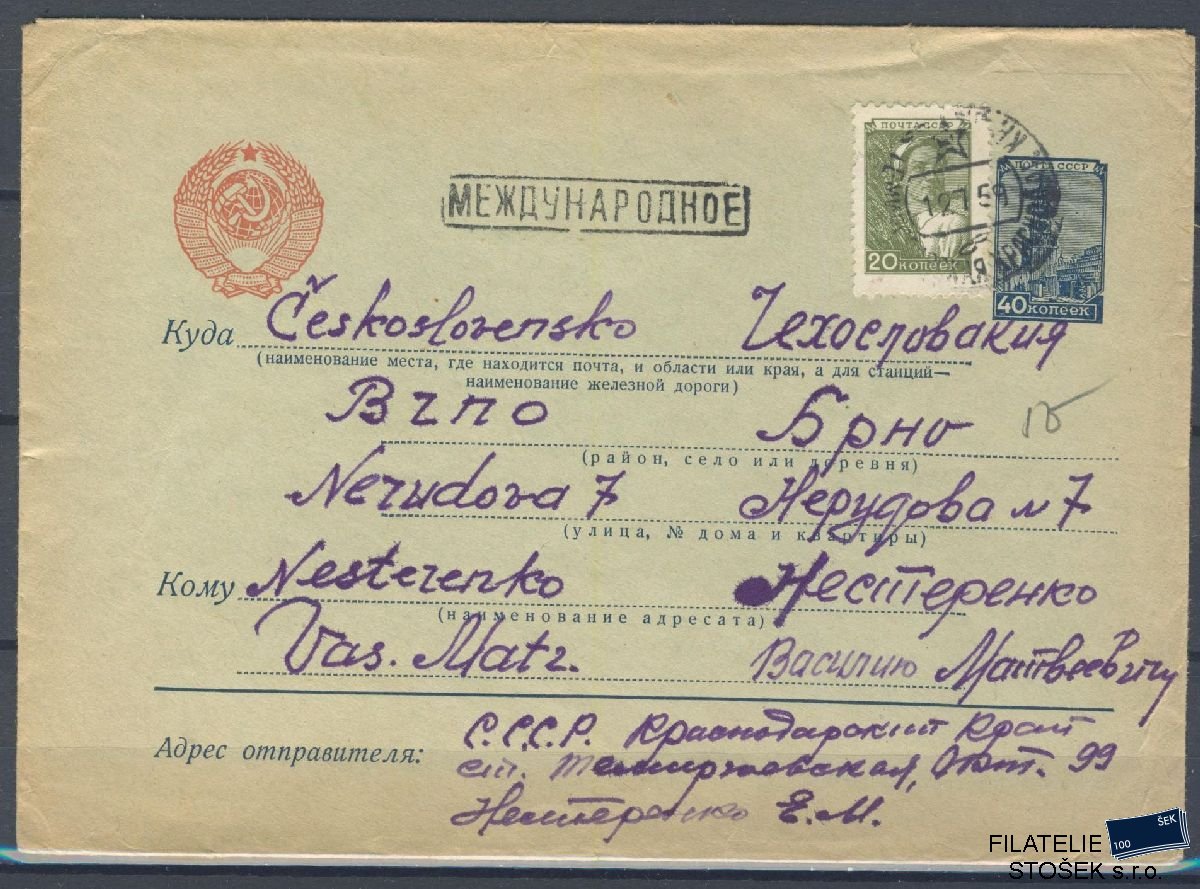 МЕЖДУНАРОДНОЕ
ПОЧТА СССР
20 копеек
12 7 59
ПОЧТА СССР
40 копеек
Куда Československo Чехословакия
(наименование места, где находится почта, и области или края, а для станций—
наименование железной дороги)
Brno Брно
15
(район, село или деревня)
Nerudova 7 Нерудова № 7
(улица, № дома и квартиры)
Кому Nesterenko Нестеренко
(наименование адресата)
Vas. Василию Матвеевичу
Адрес отправителя: С.С.С.Р. Краснодарский край
ст. Темиргоевская, 99
Нестеренко Е.М.
FILATELIE
STOŠEK s.r.o.
100
ŠEK